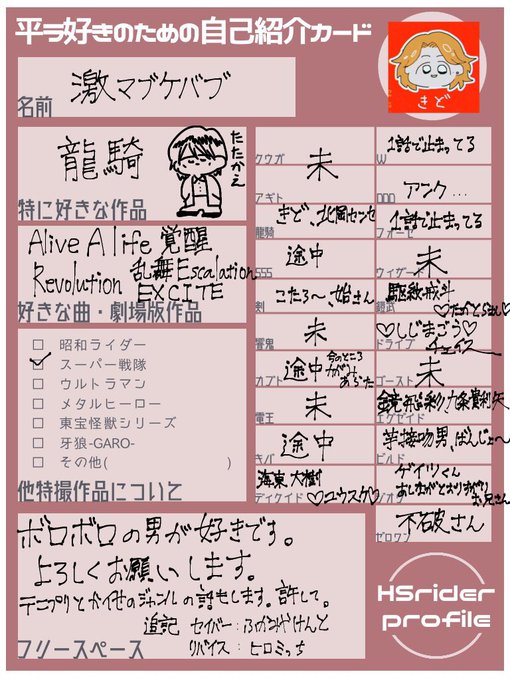 平ラ好きのための自己紹介カード
激マブケバブ
名前
きど
龍騎
たたかえ
特に好きな作品
Alive A life 覚醒
Revolution 乱舞Escalation
EXCITE
好きな曲・劇場版作品
□ 昭和ライダー
□ スーパー戦隊
□ ウルトラマン
□ メタルヒーロー
□ 東宝怪獣シリーズ
□ 牙狼-GARO-
□ その他( )
他特撮作品について
クウガ
未
アギト
龍騎
きど、北岡センセ
555
途中
剣
こたろ〜、始さん
響鬼
未
カブト
途中 今のところ
かがみ
あらた
電王
未
キバ
途中
ディケイド
海東大樹
♡ユウスケ♡
W
1話で止まってる
OOO
アンク…
フォーゼ
1話で止まってる
ウィザード
未
鎧武
駆紋戒斗
ドライブ
♡しじまごう♡
チェイス
ゴースト
未
エグゼイド
鏡飛彩、九条貴利矢
ビルド
ばんじょ〜
ジオウ
ゲイツくん
お兄さん
ゼロワン
不破さん
ボロボロの男が好きです。
よろしくお願いします。
テニプリとかイせのジャンルの話もします。許して。
追記 セイバー:ふかみやけんと
リバイス:ヒロミっち
フリースペース
HSrider
profile